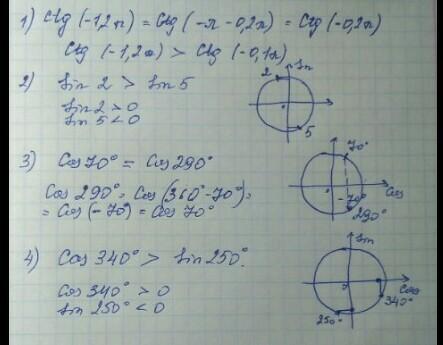 1) Ctg (-1,2π) = Ctg (-π - 0,2π) = Ctg (-0,2π)
Ctg (-1,2π) > Ctg (-0,1π)
2) Sin 2 > Sin 5
Sin 2 > 0
Sin 5 < 0
Sin
2
5
3) Cos 70° = Cos 290°
Cos 290° = Cos (360° - 70°) =
= Cos (-70°) = Cos 70°
70°
Cos
-70°
290°
4) Cos 340° > Sin 250°.
Cos 340° > 0
Sin 250° < 0
Sin
Cos
340°
250°